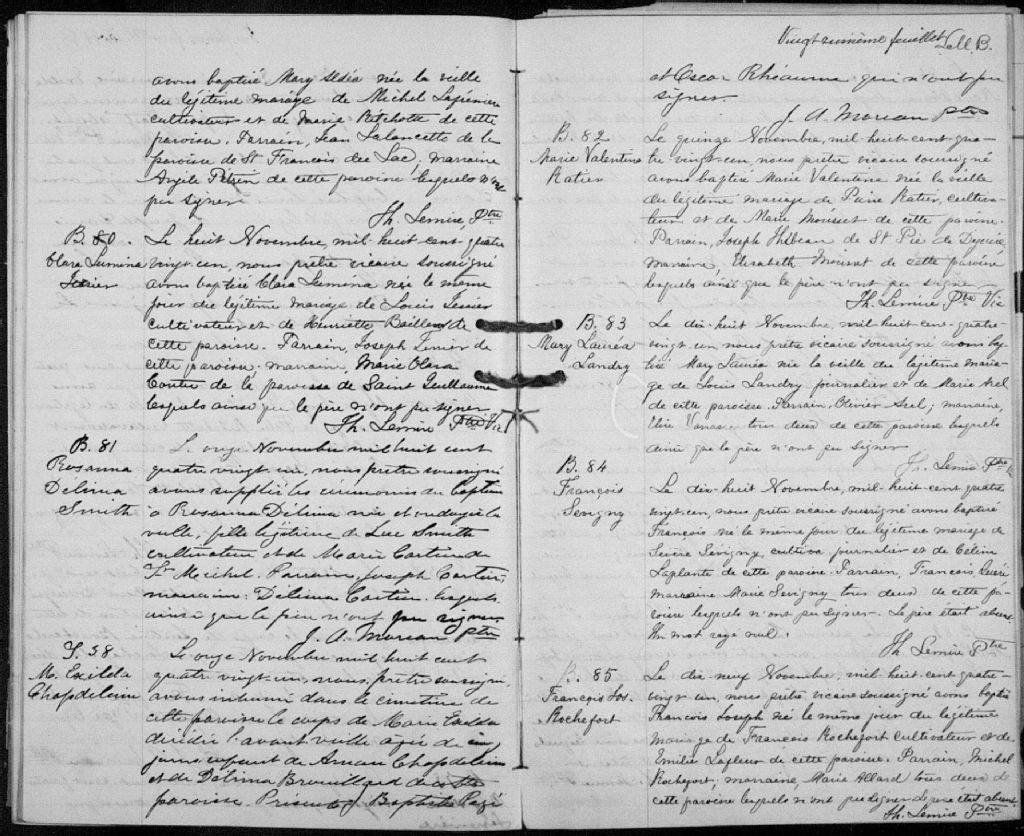 avons baptisé Mary née la veille
du légitime mariage de Michel
cultivateur et de Marie Pitchotte de cette
paroisse. Parrain, Jean Lalancette de la
paroisse de St François du Lac, marraine
de cette paroisse lesquels n'ont
pu signer.
Th. Lemire, Ptre
B. 80.
Clara Lumina
Le huit Novembre, mil huit-cent-quatre
vingt-un, nous prêtre vicaire soussigné
avons baptisé Clara Lumina née le même
jour du légitime mariage de Louis
cultivateur et de Henriette de
cette paroisse. Parrain, Joseph de
cette paroisse; marraine, Marie Clara
de la paroisse de Saint Guillaume
lesquels ainsi que le père n'ont pu signer
Th. Lemire Ptre Vic
B. 81
Rosanna
Délima
Smith
Le onze Novembre mil huit cent
quatre vingt-un, nous prêtre soussigné
avons supplié les cérémonies du baptême
à Rosanna Délima née et ondoyée la
veille, fille légitime de Luc Smith
cultivateur et de Marie Cartier de
St Michel. Parrain, Joseph Cartier,
marraine: Délima Cartier lesquels
ainsi que le père n'ont pu signer
J. A. Moreau Ptre
S. 38
M. Exilda
Chapdelaine
Le onze Novembre mil huit cent
quatre vingt-un, nous, prêtre soussigné,
avons inhumé dans le cimetière de
cette paroisse le corps de Marie Exilda
décédée l'avant veille agée de
jours enfant de Chapdelaine
et de Délima Brouillard de cette
paroisse. Présents Baptiste
Vingt-unième feuillet L.M.B.
et Oscar Rhéaume qui n'ont pu
signer.
J. A. Moreau Ptre
B. 82
Marie Valentine
Ratier
Le quinze Novembre, mil huit-cent-qua-
tre vingt-un, nous prêtre vicaire soussigné
avons baptisé Marie Valentine née la veille
du légitime mariage de Pierre Ratier, cultiva-
teur et de Marie Mousset de cette paroisse.
Parrain, Joseph de St Pie de Deguire,
marraine, Elisabeth Mousset de cette paroisse
lesquels ainsi que le père n'ont pu signer
Th. Lemire Ptre Vic
B. 83
Mary Lauréa
Landry
Le dix-huit Novembre, mil-huit-cent-quatre-
vingt-un nous prêtre vicaire soussigné avons bap-
tisé Mary Lauréa née la veille du légitime maria-
ge de Louis Landry journalier et de Marie Arel
de cette paroisse. Parrain, Olivier Arel; marraine,
tous deux de cette paroisse lesquels
ainsi que le père n'ont pu signer
Th. Lemire Ptre
B. 84
François
Sevigny
Le dix-huit Novembre, mil-huit-cent-quatre
vingt-un, nous prêtre vicaire soussigné avons baptisé
François né le même jour du légitime mariage de
Sévère Sevigny, cultiva journalier et de Célina
Laplante de cette paroisse. Parrain, François
marraine Marie Sevigny tous deux de cette pa-
roisse lesquels n'ont pu signer. Le père était absent
Un mot rayé nul.
Th. Lemire Ptre
B. 85
François Jos.
Rochefort
Le dix-neuf Novembre, mil-huit-cent-quatre-
vingt un, nous prêtre vicaire soussigné avons baptisé
François Joseph né le même jour du légitime
mariage de François Rochefort cultivateur et de
Emilie Lafleur de cette paroisse. Parrain, Michel
Rochefort; marraine, Marie Allard tous deux de
cette paroisse lesquels n'ont pu signer. Le père était absent.
Th. Lemire Ptre